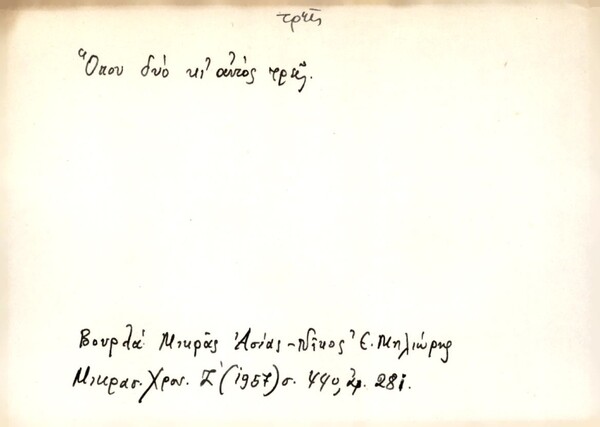 τρεῖς
Ὅπου δυό κι' αὐτός τρεῖς.
Βουρλά Μικρᾶς Ἀσίας - Νῖκος Ε. Μηλιώρης
Μικρασ. Χρον. Ζ' (1957) σ. 440, ἀρ. 281.